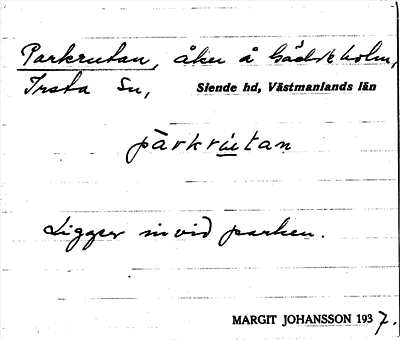 Parkrutan, åker å Gäddeholm,
Irsta Sn,
Siende hd, Västmanlands län
pàrkrùtan
Ligger invid parken.
MARGIT JOHANSSON 1937.